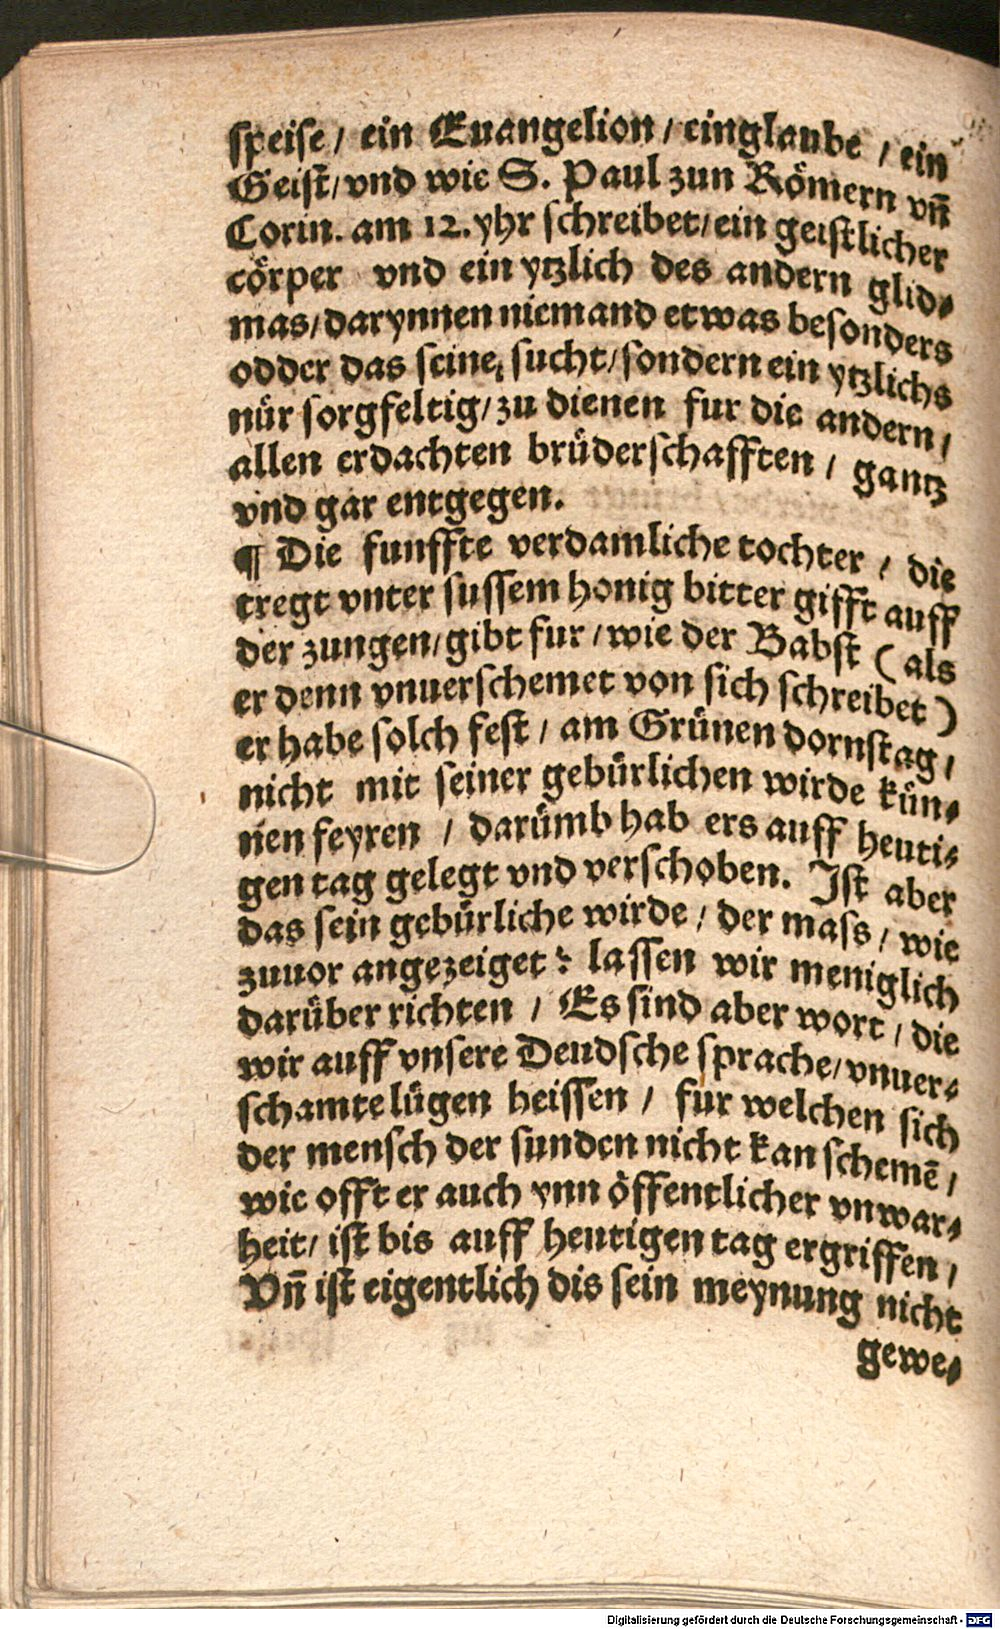 speise / ein Euangelion / ein glaube / ein
Geist / vnd wie S. Paul zun Römern vn̄
Corin. am 12. yhr schreibet / ein geistlicher
cörper vnd ein ytzlich des andern glid⸗
mas / darynnen niemand etwas besonders
odder das seine, sucht / sondern ein ytzlichs
nür sorgfeltig / zu dienen fur die andern /
allen erdachten brüderschafften / gantz
vnd gar entgegen.
¶ Die funffte verdamliche tochter / die
tregt vnter sussem honig bitter gifft auff
der zungen / gibt fur / wie der Babst (als
er denn vnuerschemet von sich schreibet)
er habe solch fest / am Grünen dornstag /
nicht mit seiner gebürlichen wirde kün⸗
nen feyren / darümb hab ers auff heuti⸗
gen tag gelegt vnd verschoben. Ist aber
das sein gebürliche wirde / der mass / wie
zuuor angezeiget? lassen wir meniglich
darüber richten / Es sind aber wort / die
wir auff vnsere Deudsche sprache / vnuer⸗
schamte lügen heissen / fur welchen sich
der mensch der sunden nicht kan schemē /
wie offt er auch ynn öffentlicher vnwar⸗
heit / ist bis auff heutigen tag ergriffen /
Vn̄ ist eigentlich dis sein meynung nicht
gewe⸗
Digitalisierung gefördert durch die Deutsche Forschungsgemeinschaft - DFG